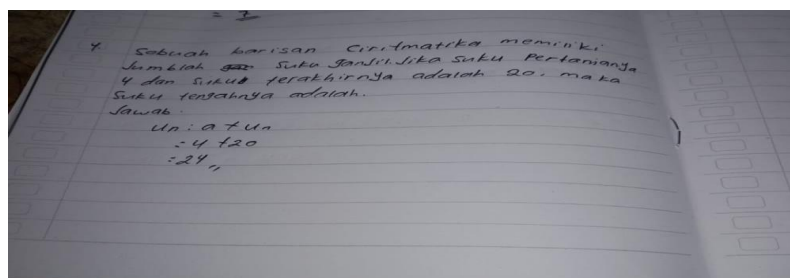 = 7
4. Sebuah barisan Ciritmatika memiliki
Jumblah suku ganjil. Jika suku Pertamanya
4 dan suku terakhirnya adalah 20. maka
Suku tengahnya adalah.
Jawab:
Un : a + Un
= 4 + 20
= 24 ,,